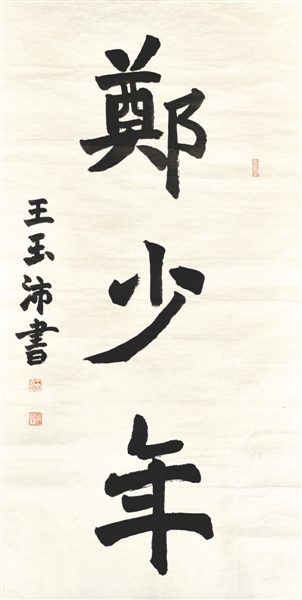 鄭少年
王玉沛書